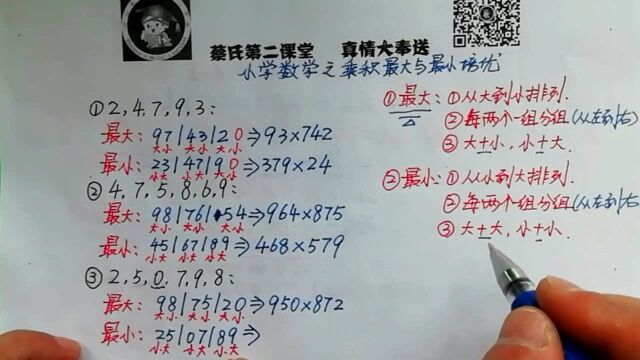 蔡氏第二课堂 真情大奉送
小学数学之乘积最大与最小培优
①2,4,7,9,3:
最大: 97|43|20⇒93×742
大小 大小 大小
最小: 23|47|90⇒379×24
小大 小大 大小
②4,7,5,8,6,9:
最大: 98|76|54⇒964×875
大小 大小 大小
最小: 45|67|89⇒468×579
小大 小大 小大
③2,5,0,7,9,8:
最大: 98|75|20⇒950×872
大小 大小 大小
最小: 25|07|89⇒
小大 小大 小大
①最大: ①从大到小排列.
②每两个一组分组(从左到右)
③大+小, 小+大.
②最小: ①从小到大排列.
②每两个组分组(从左到右
③大+大, 小+小.